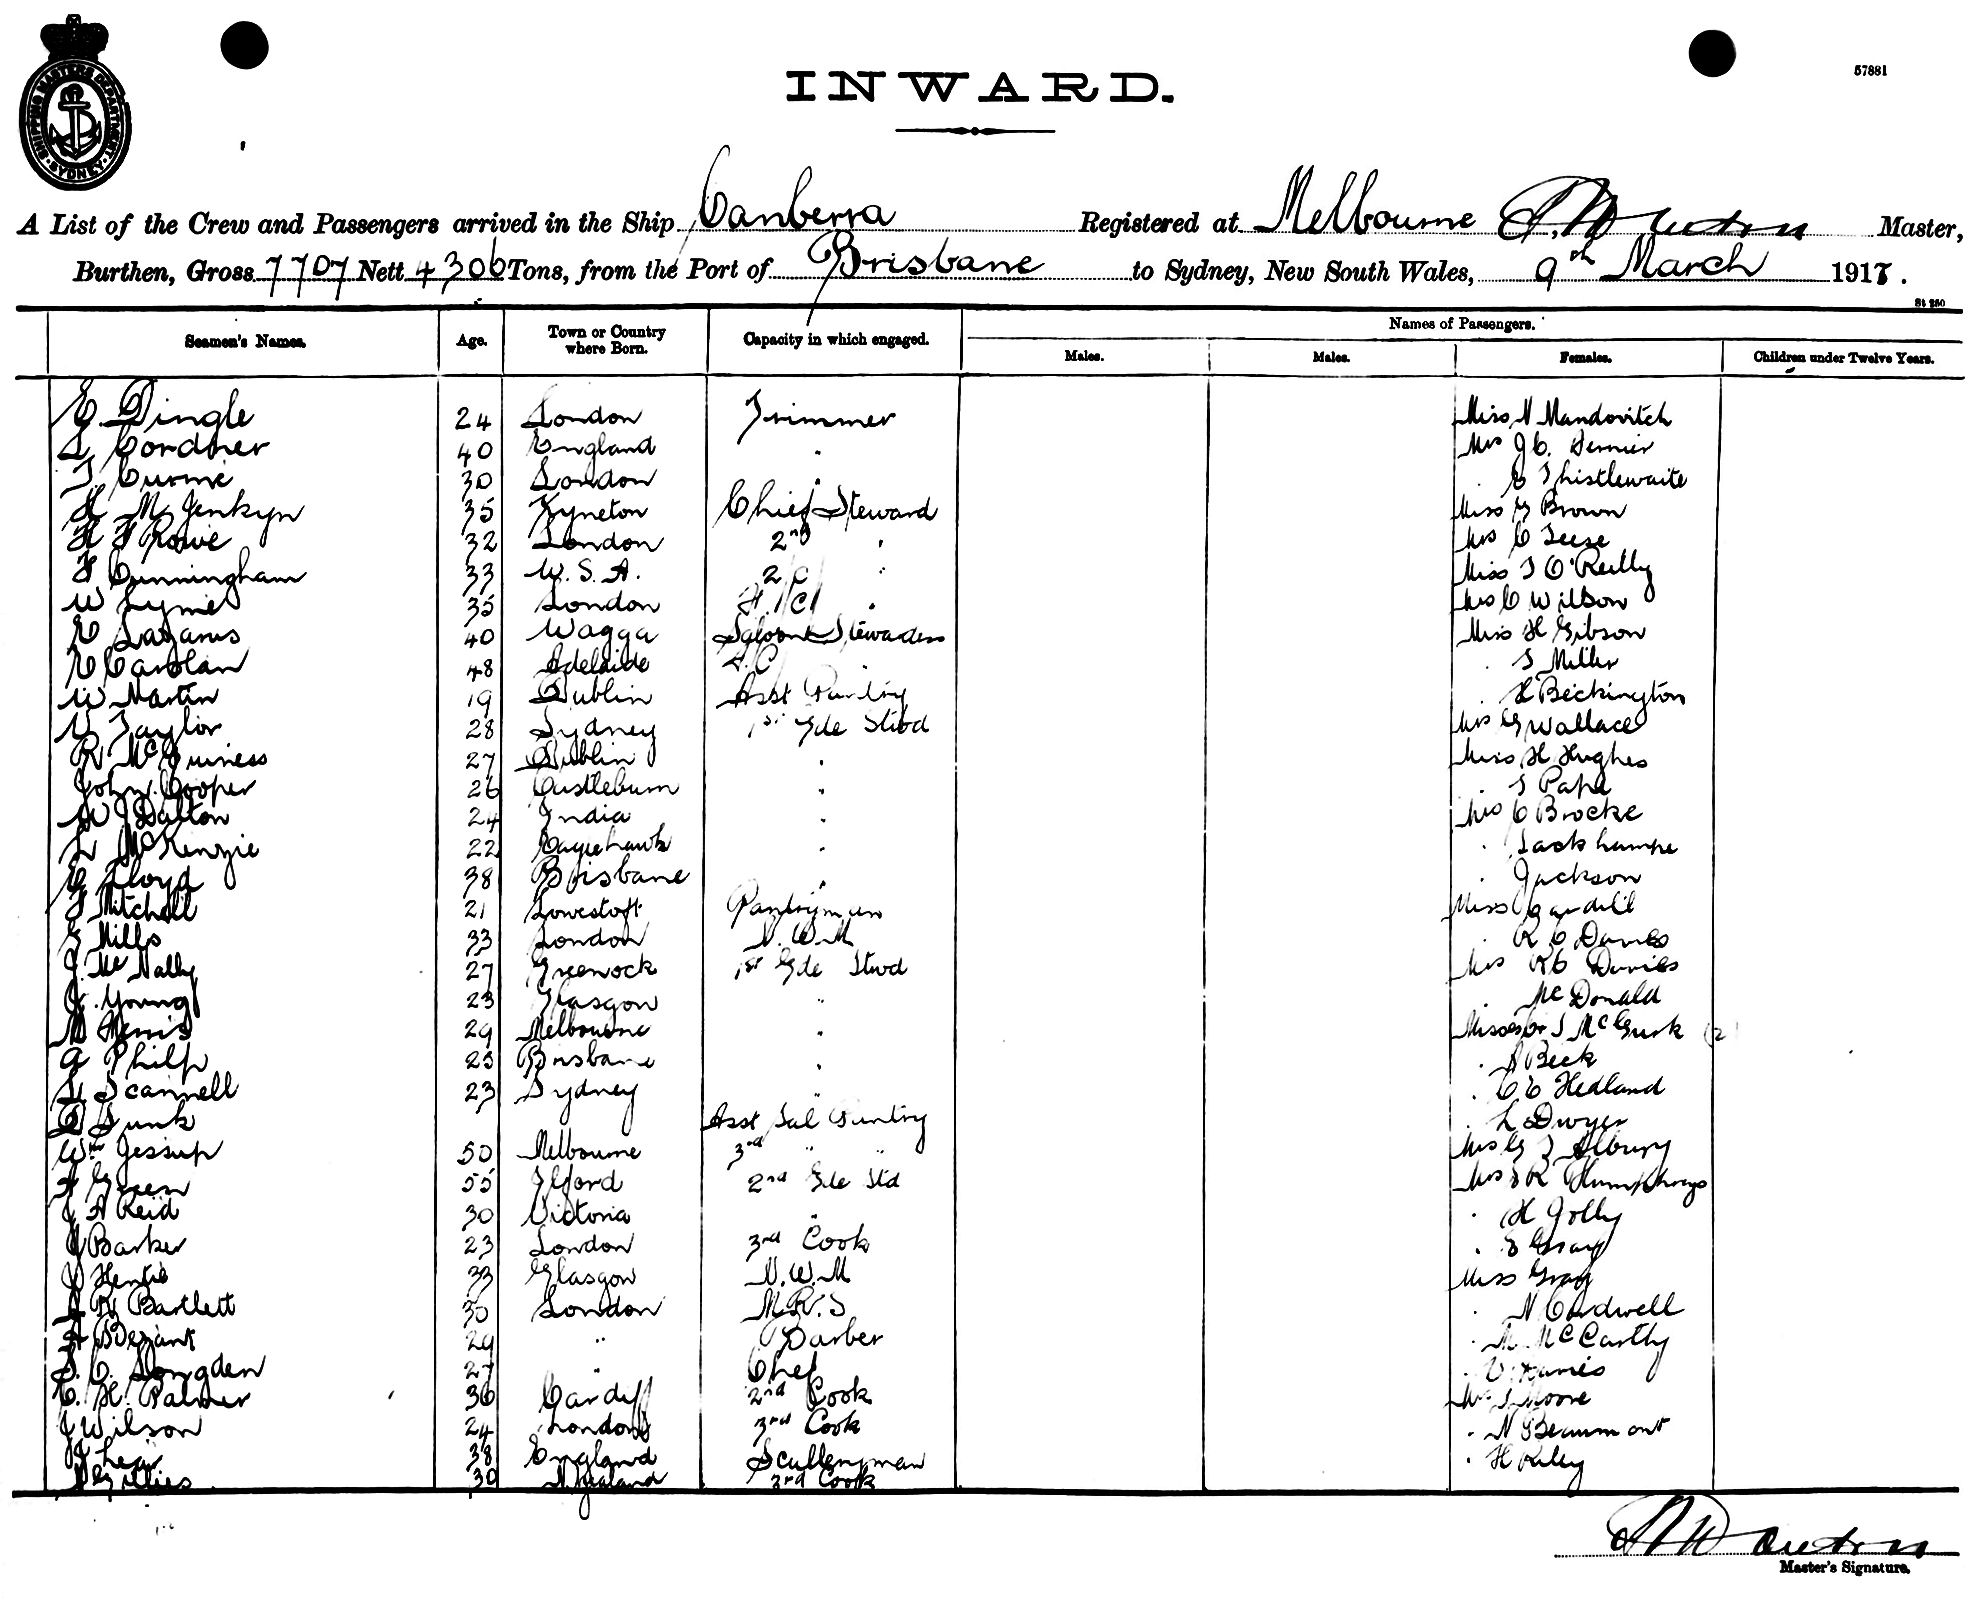 SHIPPING MASTERS DEPARTMENT SYDNEY
57881
INWARD.
A List of the Crew and Passengers arrived in the Ship Canberra Registered at Melbourne Master,
Burthen, Gross 7707 Nett 4306 Tons, from the Port of Brisbane to Sydney, New South Wales, 9th March 1917.
St 250
Seamen's Names. Age. Town or Country where Born. Capacity in which engaged. Names of Passengers.
Males. Males. Females. Children under Twelve Years.
E. Dingle 24 London Trimmer Miss N Mandovitch
Cordner 40 England " Mrs J C.
30 London " Thistlewaite
H M Jenkyn 35 Kyneton Chief Steward Miss G Brown
H F Rowe 32 London 2nd " Mrs C Teese
F Cunningham 33 U.S.A. 2/C " Miss T O'Reilly
W Lyme 35 London F./C/ " Mrs C Wilson
E Lazarus 40 Wagga Saloon Stewardess Miss H Gibson
E Carolan 48 Adelaide " Miller
W Martin 19 Dublin Asst Pantry " H Beckington
V Taylor 28 Sydney 1st Gde Stwd Mrs G Wallace
R McGuiness 27 Dublin " Miss H Hughes
John Cooper 26 Castleburn " " Papa
W J Dalton 24 India " Mrs C Brocke
L McKenzie 22 Eaglehawk " "
E Lloyd 38 Brisbane " " Jackson
F Mitchell 21 Lowestoft Pantryman Miss
G Mills 33 London N.W.M " R C Davies
J. McNally 27 Greenock 1st Gde Stwd Mrs R C Davies
J. Young 23 Glasgow " " McDonald
M 29 Melbourne " Misses McGurk (2)
A Philp 25 Brisbane " " Beck
Scannell 23 Sydney " " C E Hedland
Asst Sal Pantry " L Dwyer
Wm Jessup 50 Melbourne 3rd " " Mrs G T Albury
F Green 55 Ilford 2nd Gde Std Mrs R Humphreys
J A Reid 30 Victoria " " H Jolly
J Barker 23 London 3rd Cook " Gray
33 Glasgow N.W.M Miss Gray
R Bartlett 30 London M.R.S " N Cardwell
29 " Barber " M McCarthy
S. C. Longden 27 " Chef "
C. H. Palmer 36 Cardiff 2nd Cook Moore
J Wilson 24 London 3rd Cook " N Beaumont
38 England Sculleryman " H Riley
Gillies 30 N. Zealand 3rd Cook
Master's Signature.